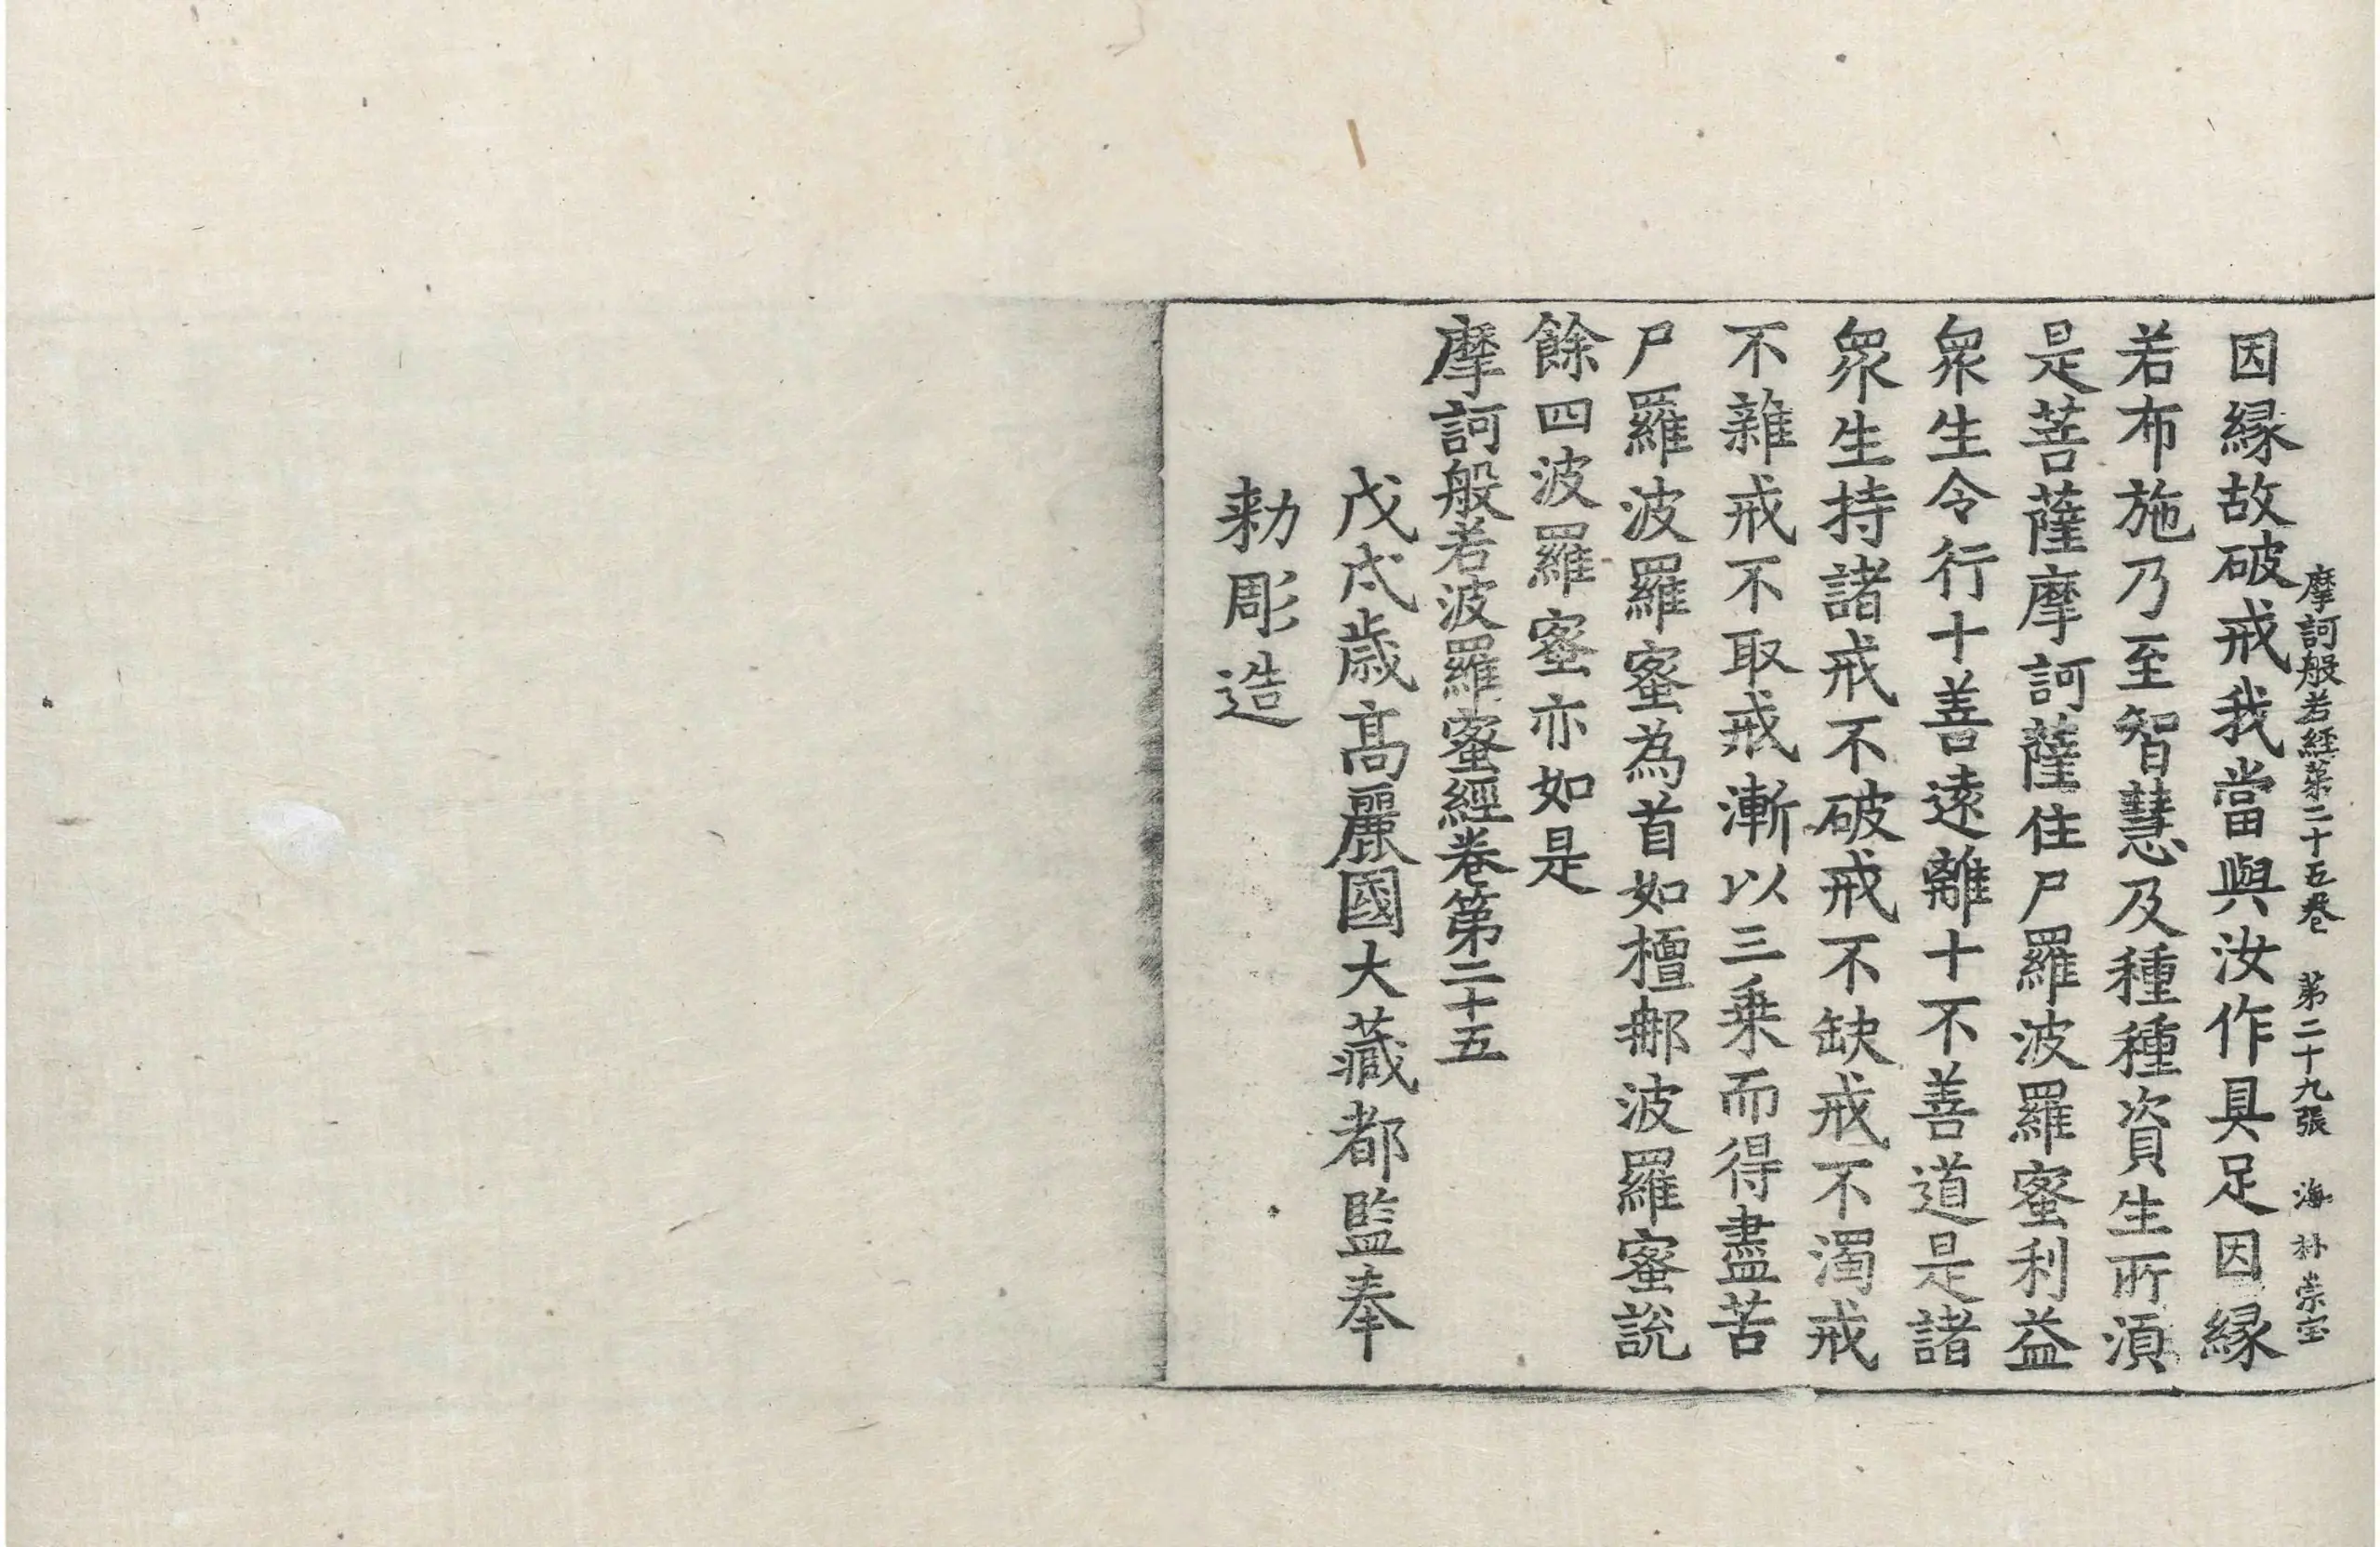 摩訶般若經第二十五卷 第二十九張 海 朴崇宝
因緣故破戒我當與汝作具足因緣
若布施乃至智慧及種種資生所須
是菩薩摩訶薩住尸羅波羅蜜利益
衆生令行十善遠離十不善道是諸
衆生持諸戒不破戒不缺戒不濁戒
不雜戒不取戒漸以三乗而得盡苦
尸羅波羅蜜為首如檀𨚗波羅蜜說
餘四波羅蜜亦如是
摩訶般若波羅蜜經卷第二十五
戊戌歲高麗國大藏都監奉
勑彫造